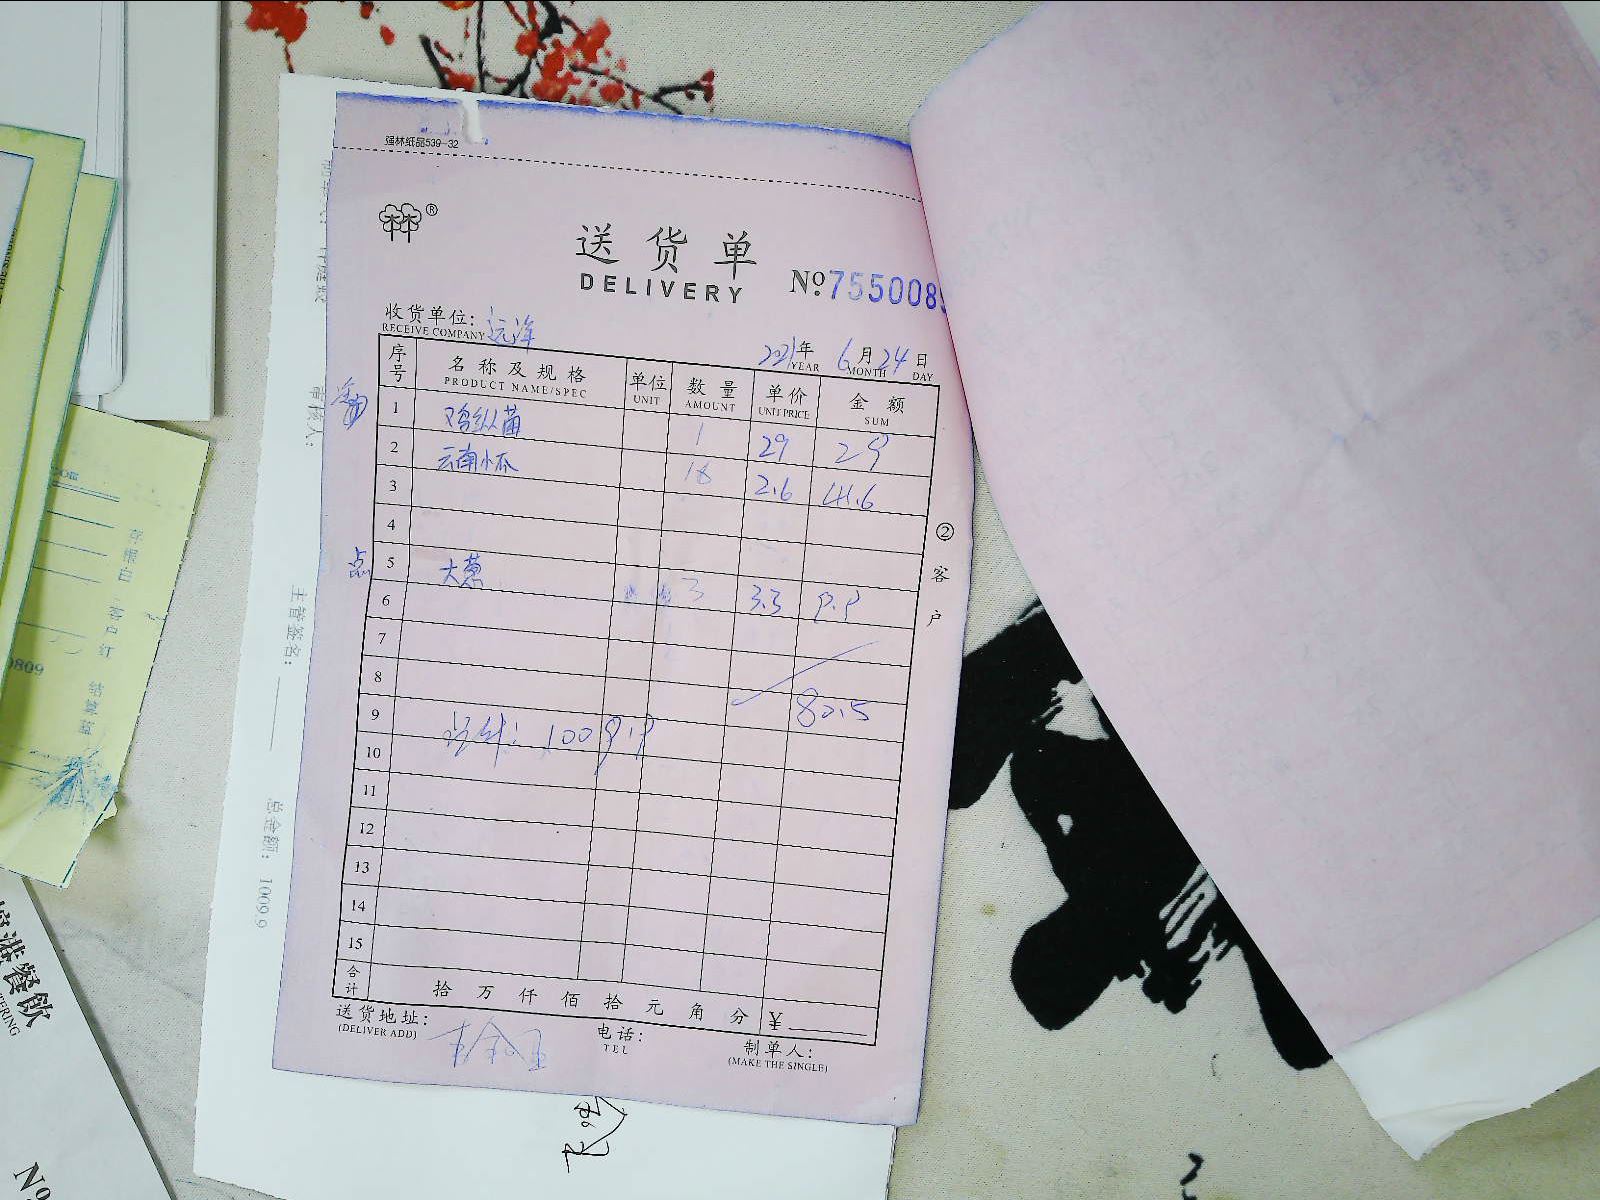 强林纸品539-32
®
送货单
DELIVERY
No 755008
收货单位: 远洋
RECEIVE COMPANY
2021年 6月24日
YEAR MONTH DAY
序号 名称及规格 单位 数量 单价 金额
PRODUCT NAME/SPEC UNIT AMOUNT UNIT PRICE SUM
1 鸡纵菌 1 29 29
2 云南小瓜 16 2.6 41.6
3
4
点 5 大葱 3 3.3 9.9
6
7
8 80.5
9 总计: 1009.9
10
11
12
13
14
15
合计 拾 万 仟 佰 拾 元 角 分 ¥
送货地址: 电话: 制单人:
(DELIVER ADD) TEL (MAKE THE SINGLE)
②客户
审核人:
主管签名:
总金额: 1009.9
0809
结算蓝
港餐飲
TERING
No